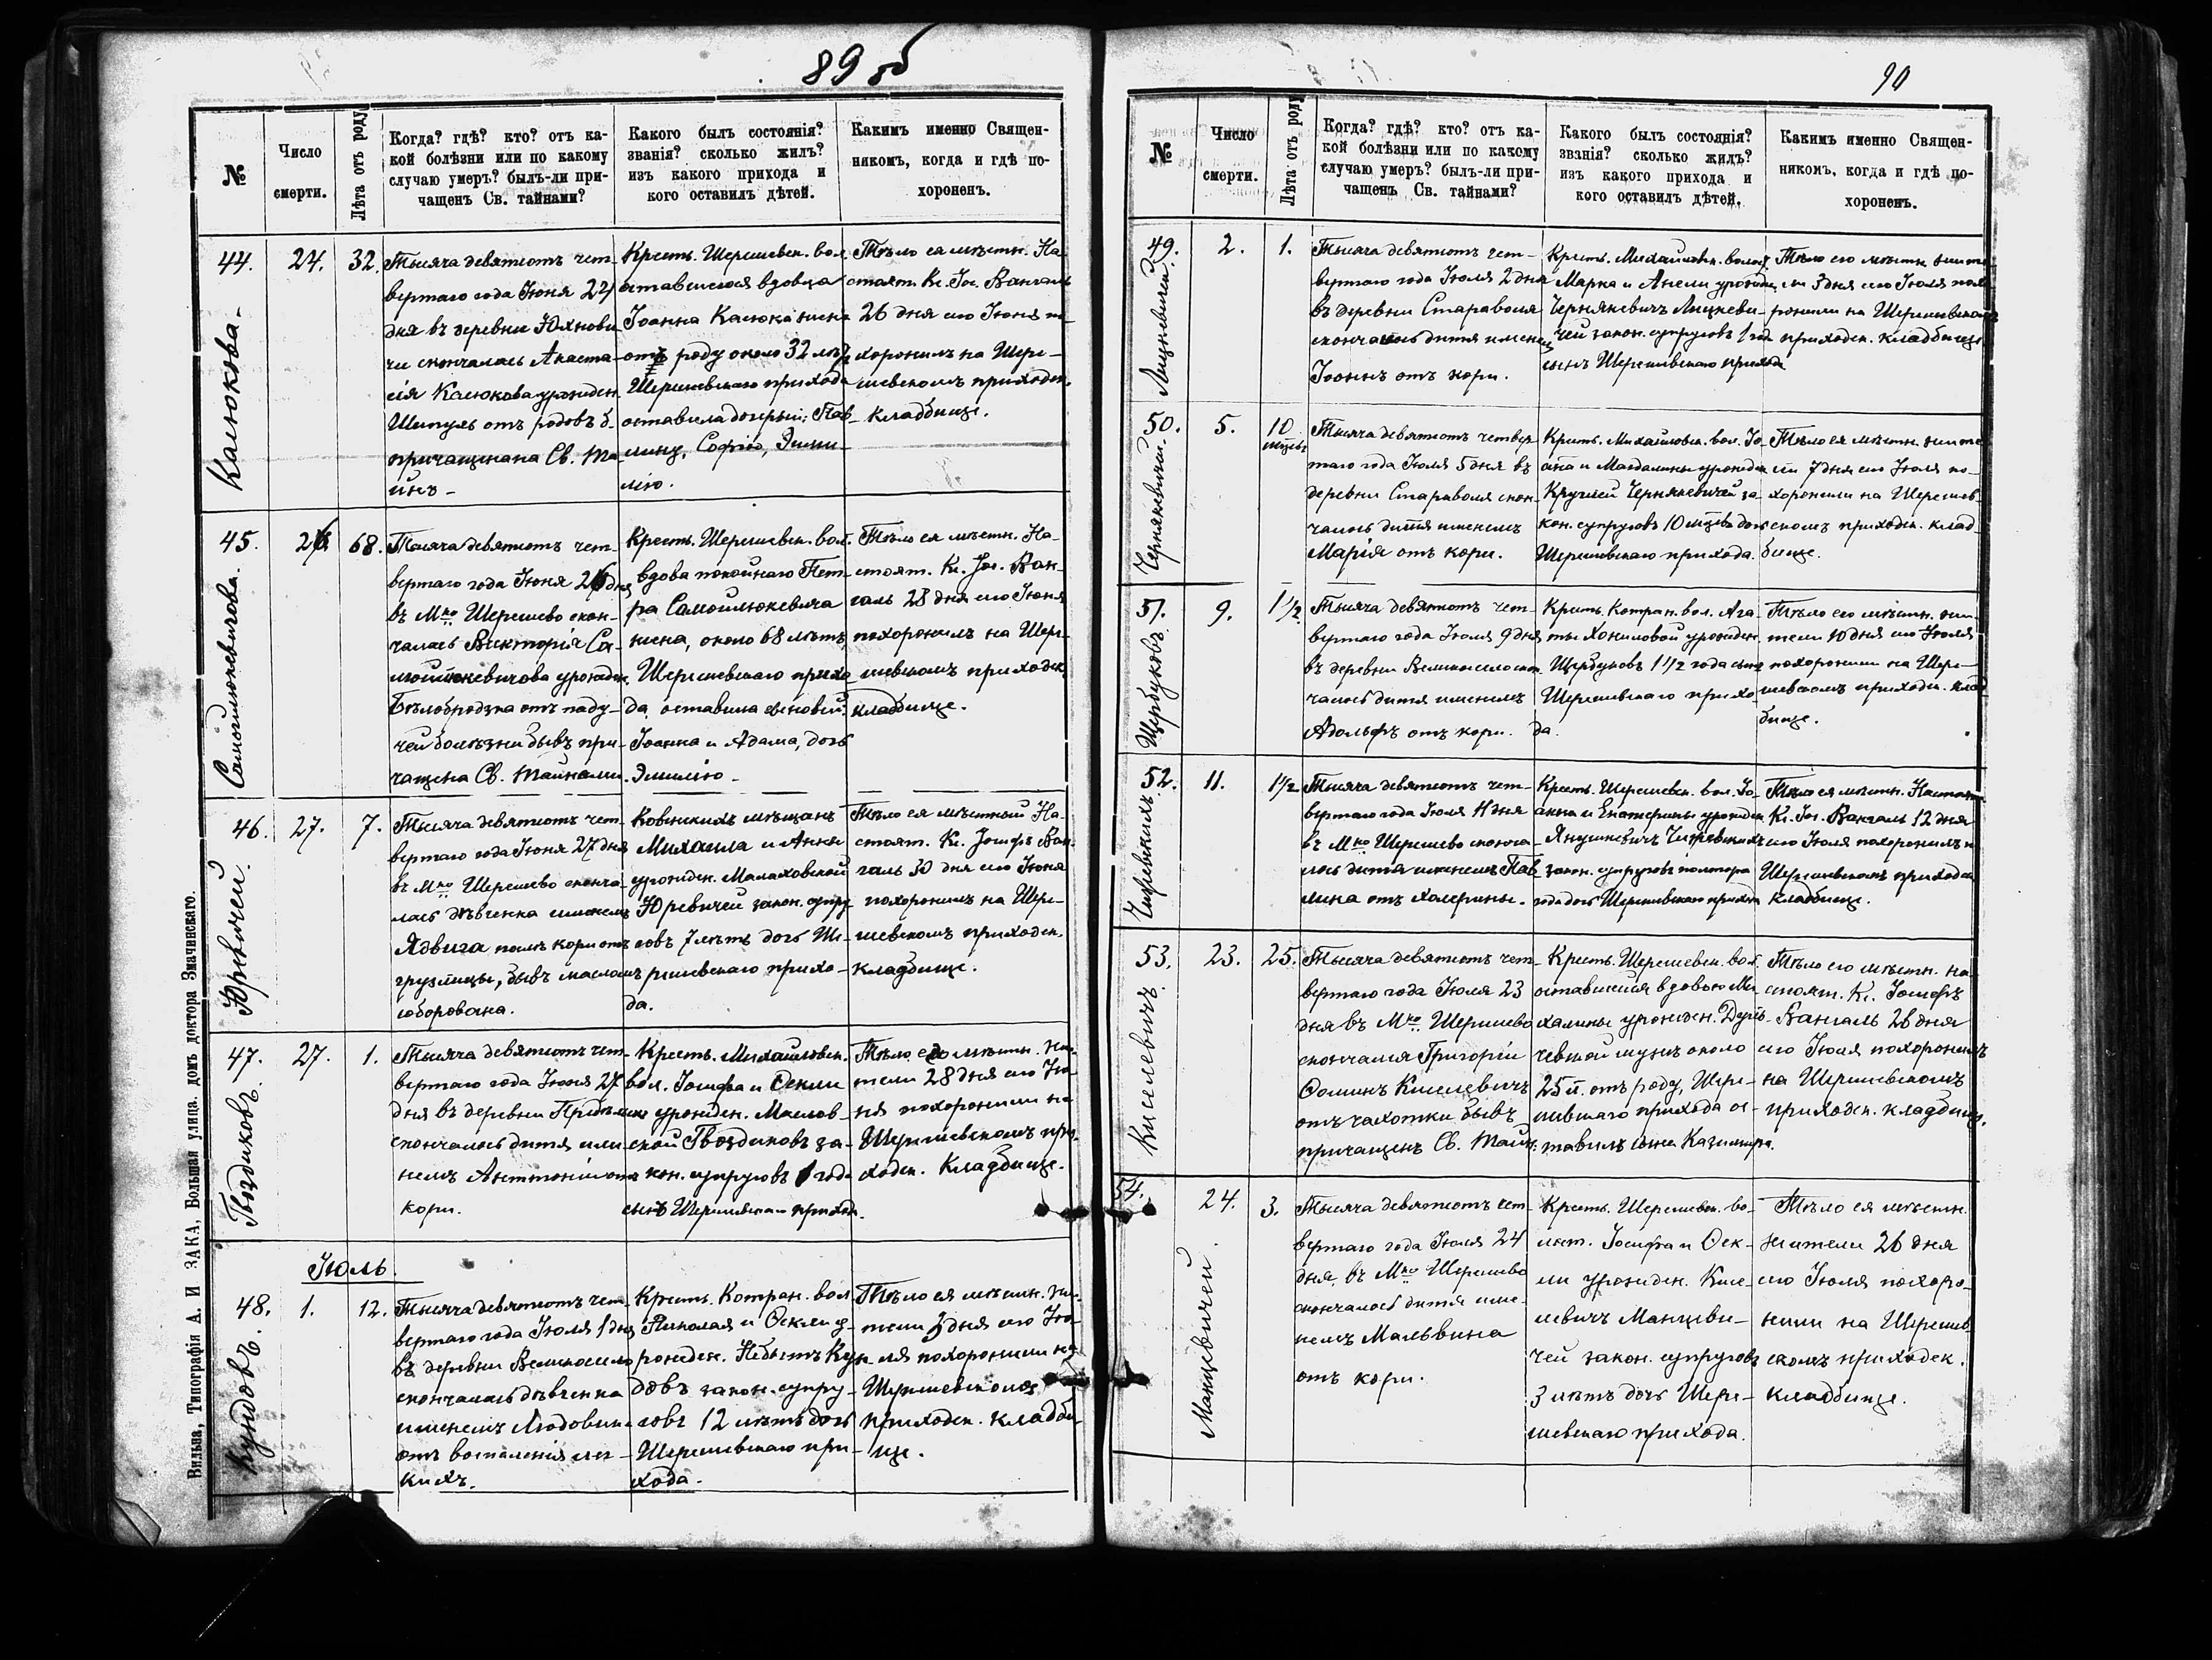 89 об
№
Число
смерти.
Лѣта отъ роду
Когда? гдѣ? кто? отъ ка-
кой болѣзни или по какому
случаю умеръ? былъ-ли при-
чащенъ Св. тайнами?
Какого былъ состоянія?
званія? сколько жилъ?
изъ какого прихода и
кого оставилъ дѣтей.
Какимъ именно Священ-
никомъ, когда и гдѣ по-
хороненъ.
44.
Касюкова
24.
32.
Тысяча девятьсотъ чет-
вертаго года Іюня 24
дня въ деревни Юхнови-
чи скончалась Анаста-
сія Касюкова урожден.
Шипуль отъ родовъ б.
причащенана Св. Та-
йнъ
Крест. Шерешевск. вол.
оставшегося вдовца
Іоанна Касюка жена
отъ роду около 32 лѣтъ
Шерешевскаго прихода
оставила дочерый: Пав-
лину, Софію, Эми-
лію.
Тѣло ея мѣстн. На-
стоят. Кс. Іос. Вангаль
26 дня сего Іюня по-
хоронилъ на Шере-
шевскомъ приходск.
кладбище.
45.
Самойлюкевичова.
26
68.
Тысяча девятьсотъ чет-
вертаго года Іюня 26 дня
въ Мко Шерешево скон-
чалась Викторія Са-
мойлюкевичова урожден.
Бѣлобродзка отъ паду-
чей болѣзни бывъ при-
чащена Св. Тайнами.
Крест. Шерешевск. вол.
вдова покойнаго Пет-
ра Самойлюкевича
жена, около 68 лѣтъ,
Шерешевскаго прихо-
да, оставила сыновей:
Іоанна и Адама, дочь
Эмилію
Тѣло ея мѣстн. На-
стоят. Кс. Іос. Ван-
галь 28 дня сего Іюня
похоронилъ на Шере-
шевскомъ приходск.
кладбище.
46.
Юревичей.
27.
7.
Тысяча девятьсотъ чет-
вертаго года Іюня 27 дня
въ Мко Шерешево сконча-
лась дѣвченка именемъ
Ядвига
бывъ масломъ
соборована.
Ковенскихъ мѣщанъ
Михаила и Анны
урожден. Малаховской
Юревичей закон. супру-
говъ 7 лѣтъ дочь Ше-
решевскаго прихо-
да.
Тѣло ея мѣстный На-
стоят. Кс. Іосифъ Ван-
галь 30 дня сего Іюня
похоронилъ на Шере-
шевскомъ приходск.
кладбище.
47.
Гвоздиковъ.
27.
1.
Тысяча девятьсотъ чет-
вертаго года Іюня 27
дня въ деревни
скончалось дитя име-
немъ Антоній отъ
кори.
Крест. Михайловск.
вол. Іосифа и Фекли
урожден. Маслов-
ской Гвоздиковъ за-
кон. супруговъ 1 года
сынъ Шерешевскаго прихода.
Тѣло его мѣстн. жи-
тели 28 дня сего Ію-
ня похоронили на
Шерешевскомъ при-
ходск. кладбище.
Іюль.
48.
Кундовъ.
1.
12.
Тысяча девятьсотъ чет-
вертаго года Іюля 1 дня
въ деревни Великосело
скончалась дѣвченка
именемъ Людовика
отъ воспаленія лег-
кихъ.
Крест. Котран. вол.
Николая и Фекли у-
рожден. Кун-
довъ закон. супру-
говъ 12 лѣтъ дочь
Шерешевскаго при-
хода.
Тѣло ея мѣстн. жи-
тели 3 дня сего Ію-
ля похоронили на
Шерешевскомъ
приходск. кладби-
ще.
Вильна, Типографія А. И ЗАКА, Большая улица. домъ доктора Змачинскаго.
90
№
Число
смерти.
Лѣта отъ роду
Когда? гдѣ? кто? отъ ка-
кой болѣзни или по какому
случаю умеръ? былъ-ли при-
чащенъ Св. тайнами?
Какого былъ состоянія?
званія? сколько жилъ?
изъ какого прихода и
кого оставилъ дѣтей.
Какимъ именно Священ-
никомъ, когда и гдѣ по-
хороненъ.
49.
Лицкевичей.
2.
1.
Тысяча девятьсотъ чет-
вертаго года Іюля 2 дня
въ деревни Стараволя
скончалось дитя именемъ
Іоаннъ отъ кори.
Крест. Михайловск. волос.
Марка и Анели урожден.
Чернякевичъ Лицкеви-
чей закон. супруговъ 1 год
сынъ Шерешевскаго прихода
Тѣло его мѣстн. жите-
ли 3 дня сего Іюля похо-
ронили на Шерешевскомъ
приходск. кладбище
50.
Чернякевичей.
5.
10
мѣсяц.
Тысяча девятьсотъ четвер-
таго года Іюля 5 дня въ
деревни Стараволя скон-
чалось дитя именемъ
Марія отъ кори.
Крест. Михайловск. вол. Іо-
ана и Магдалины урожден.
Круглей Чернякевичей за-
кон. супруговъ 10 мѣсяцевъ дочь
Шерешевскаго прихода.
Тѣло ея мѣстн. жите-
ли 7 дня сего Іюля по-
хоронили на Шерешев-
скомъ приходск. клад-
бище.
51.
Щербуковъ
9.
1 1/2
Тысяча девятьсотъ чет-
вертаго года Іюля 9 дня
въ деревни Великосело скон-
чалось дитя именемъ
Адольфъ отъ кори.
Крест. Котран. вол. Ага-
ты урожден.
Щербуковъ 1 1/2 года сынъ
Шерешевскаго прихо-
да.
Тѣло его мѣстн. жи-
тели 10 дня сего Іюля
похоронили на Шере-
шевскомъ приходск. клад-
бище.
52.
11.
1 1/2
Тысяча девятьсотъ чет-
вертаго года Іюля 11 дня
въ Мко Шерешево сконча-
лось дитя именемъ Пав-
лина отъ холерины.
Крест. Шерешевск. вол. Іо-
анна и Екатерины урожден
Янушкевичъ
закон. супруговъ полтора
года дочь Шерешевскаго прихода
Тѣло ея мѣстн. Настоят.
Кс. Іос. Вангаль 12 дня
сего Іюля похоронилъ н
Шерешевскомъ приходск
кладбище.
53.
Киселевичъ.
23.
25.
Тысяча девятьсотъ чет-
вертаго года Іюля 23
дня въ Мко Шерешево
скончался Григорій
Фоминъ Киселевичъ
отъ чахотки бывъ
причащенъ Св. Тайн.
Крест. Шерешевск. вол.
оставшейся вдовою Ми-
халины урожден.
мужъ около
25 л. отъ роду, Шере-
шевскаго прихода ос-
тавилъ сына Казимира.
Тѣло его мѣстн. на-
стоят. Кс. Іосифъ
Вангаль 26 дня
сего Іюля похоронилъ
на Шерешевскомъ
приходск. кладбище.
54.
Манцевичей.
24.
3.
Тысяча девятьсотъ чет-
вертаго года Іюля 24
дня, въ Мко Шерешево
скончалось дитя име-
немъ Мальвина
отъ кори.
Крест. Шерешевск. во-
лост. Іосифа и Фек-
ли урожден. Кисе-
левичъ Манцеви-
чей закон. супруговъ
3 лѣтъ дочь Шере-
шевскаго прихода.
Тѣло ея мѣстн.
жители 26 дня
сего Іюля похоро-
нили на Шерешев-
скомъ приходск.
кладбище.